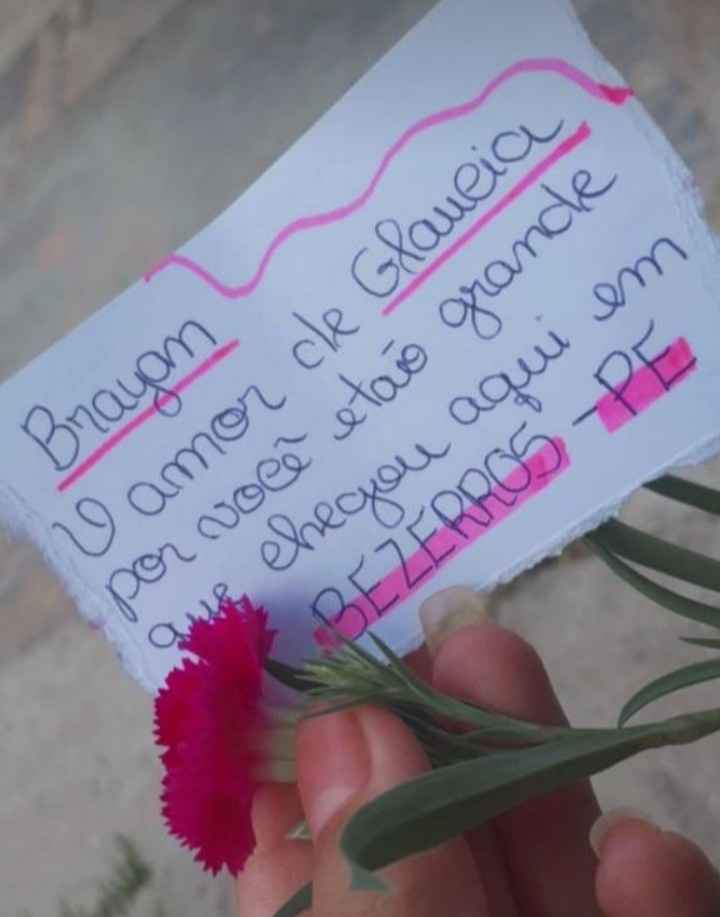 Brayan
O amor de Glaucia
por você étão grande
que chegou aqui em
BEZERROS - PE